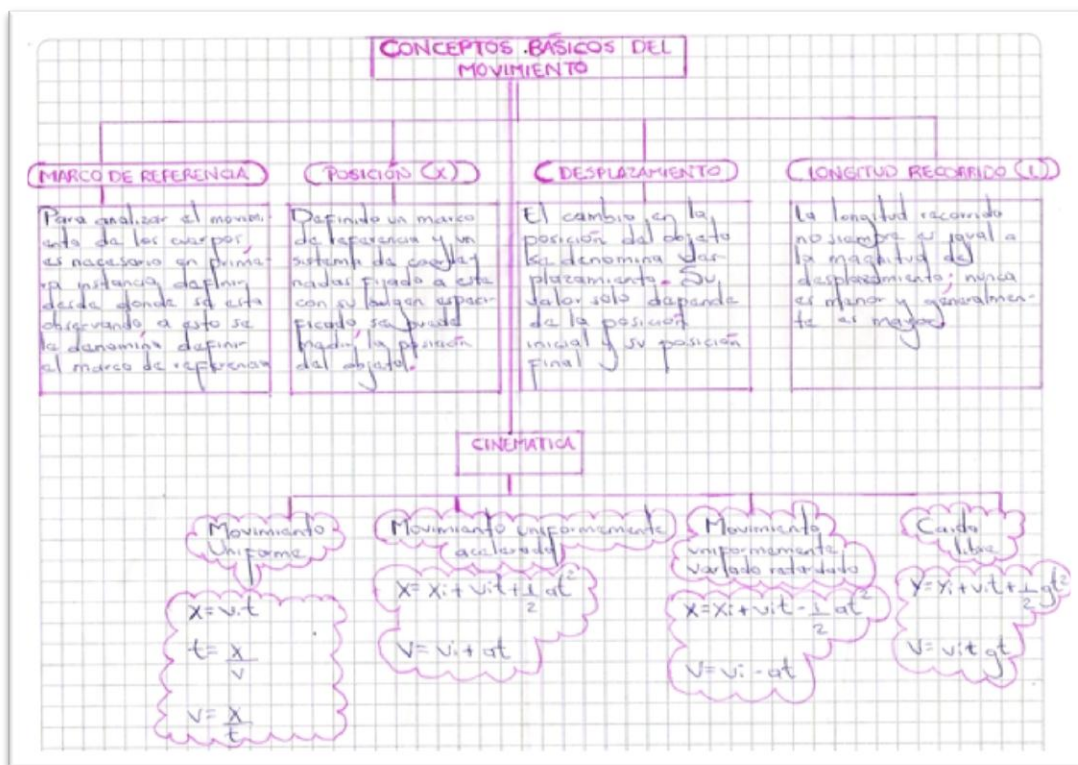 CONCEPTOS BÁSICOS DEL
MOVIMIENTO
MARCO DE REFERENCIA
Para analizar el movimi-
ento de los cuerpos,
es necesario en prime-
ra instancia definir
desde donde se esta
observando, a esto se
le denomina definir
el marco de referencia
POSICIÓN (X)
Definido un marco
de referencia y un
sistema de coorde-
nadas fijado a este
con su origen especi-
ficado se puede
medir la posición
del objeto.
DESPLAZAMIENTO
El cambio en la
posición del objeto
se denomina des-
plazamiento. Su
valor solo depende
de la posición
inicial y su posición
final
LONGITUD RECORRIDO (L)
La longitud recorrido
no siempre es igual a
la magnitud del
desplazamiento; nunca
es menor y generalmen-
te es mayor
CINEMÁTICA
Movimiento
Uniforme
X=v.t
t=x/v
v=x/t
Movimiento uniformemente
acelerado
X=Xi+vit+1/2 at²
V=vi+at
Movimiento
uniformemente
variado retardado
X=Xi+vit-1/2 at²
V=vi-at
Caida
libre
Y=Yi+vit+1/2 gt²
V=vit gt